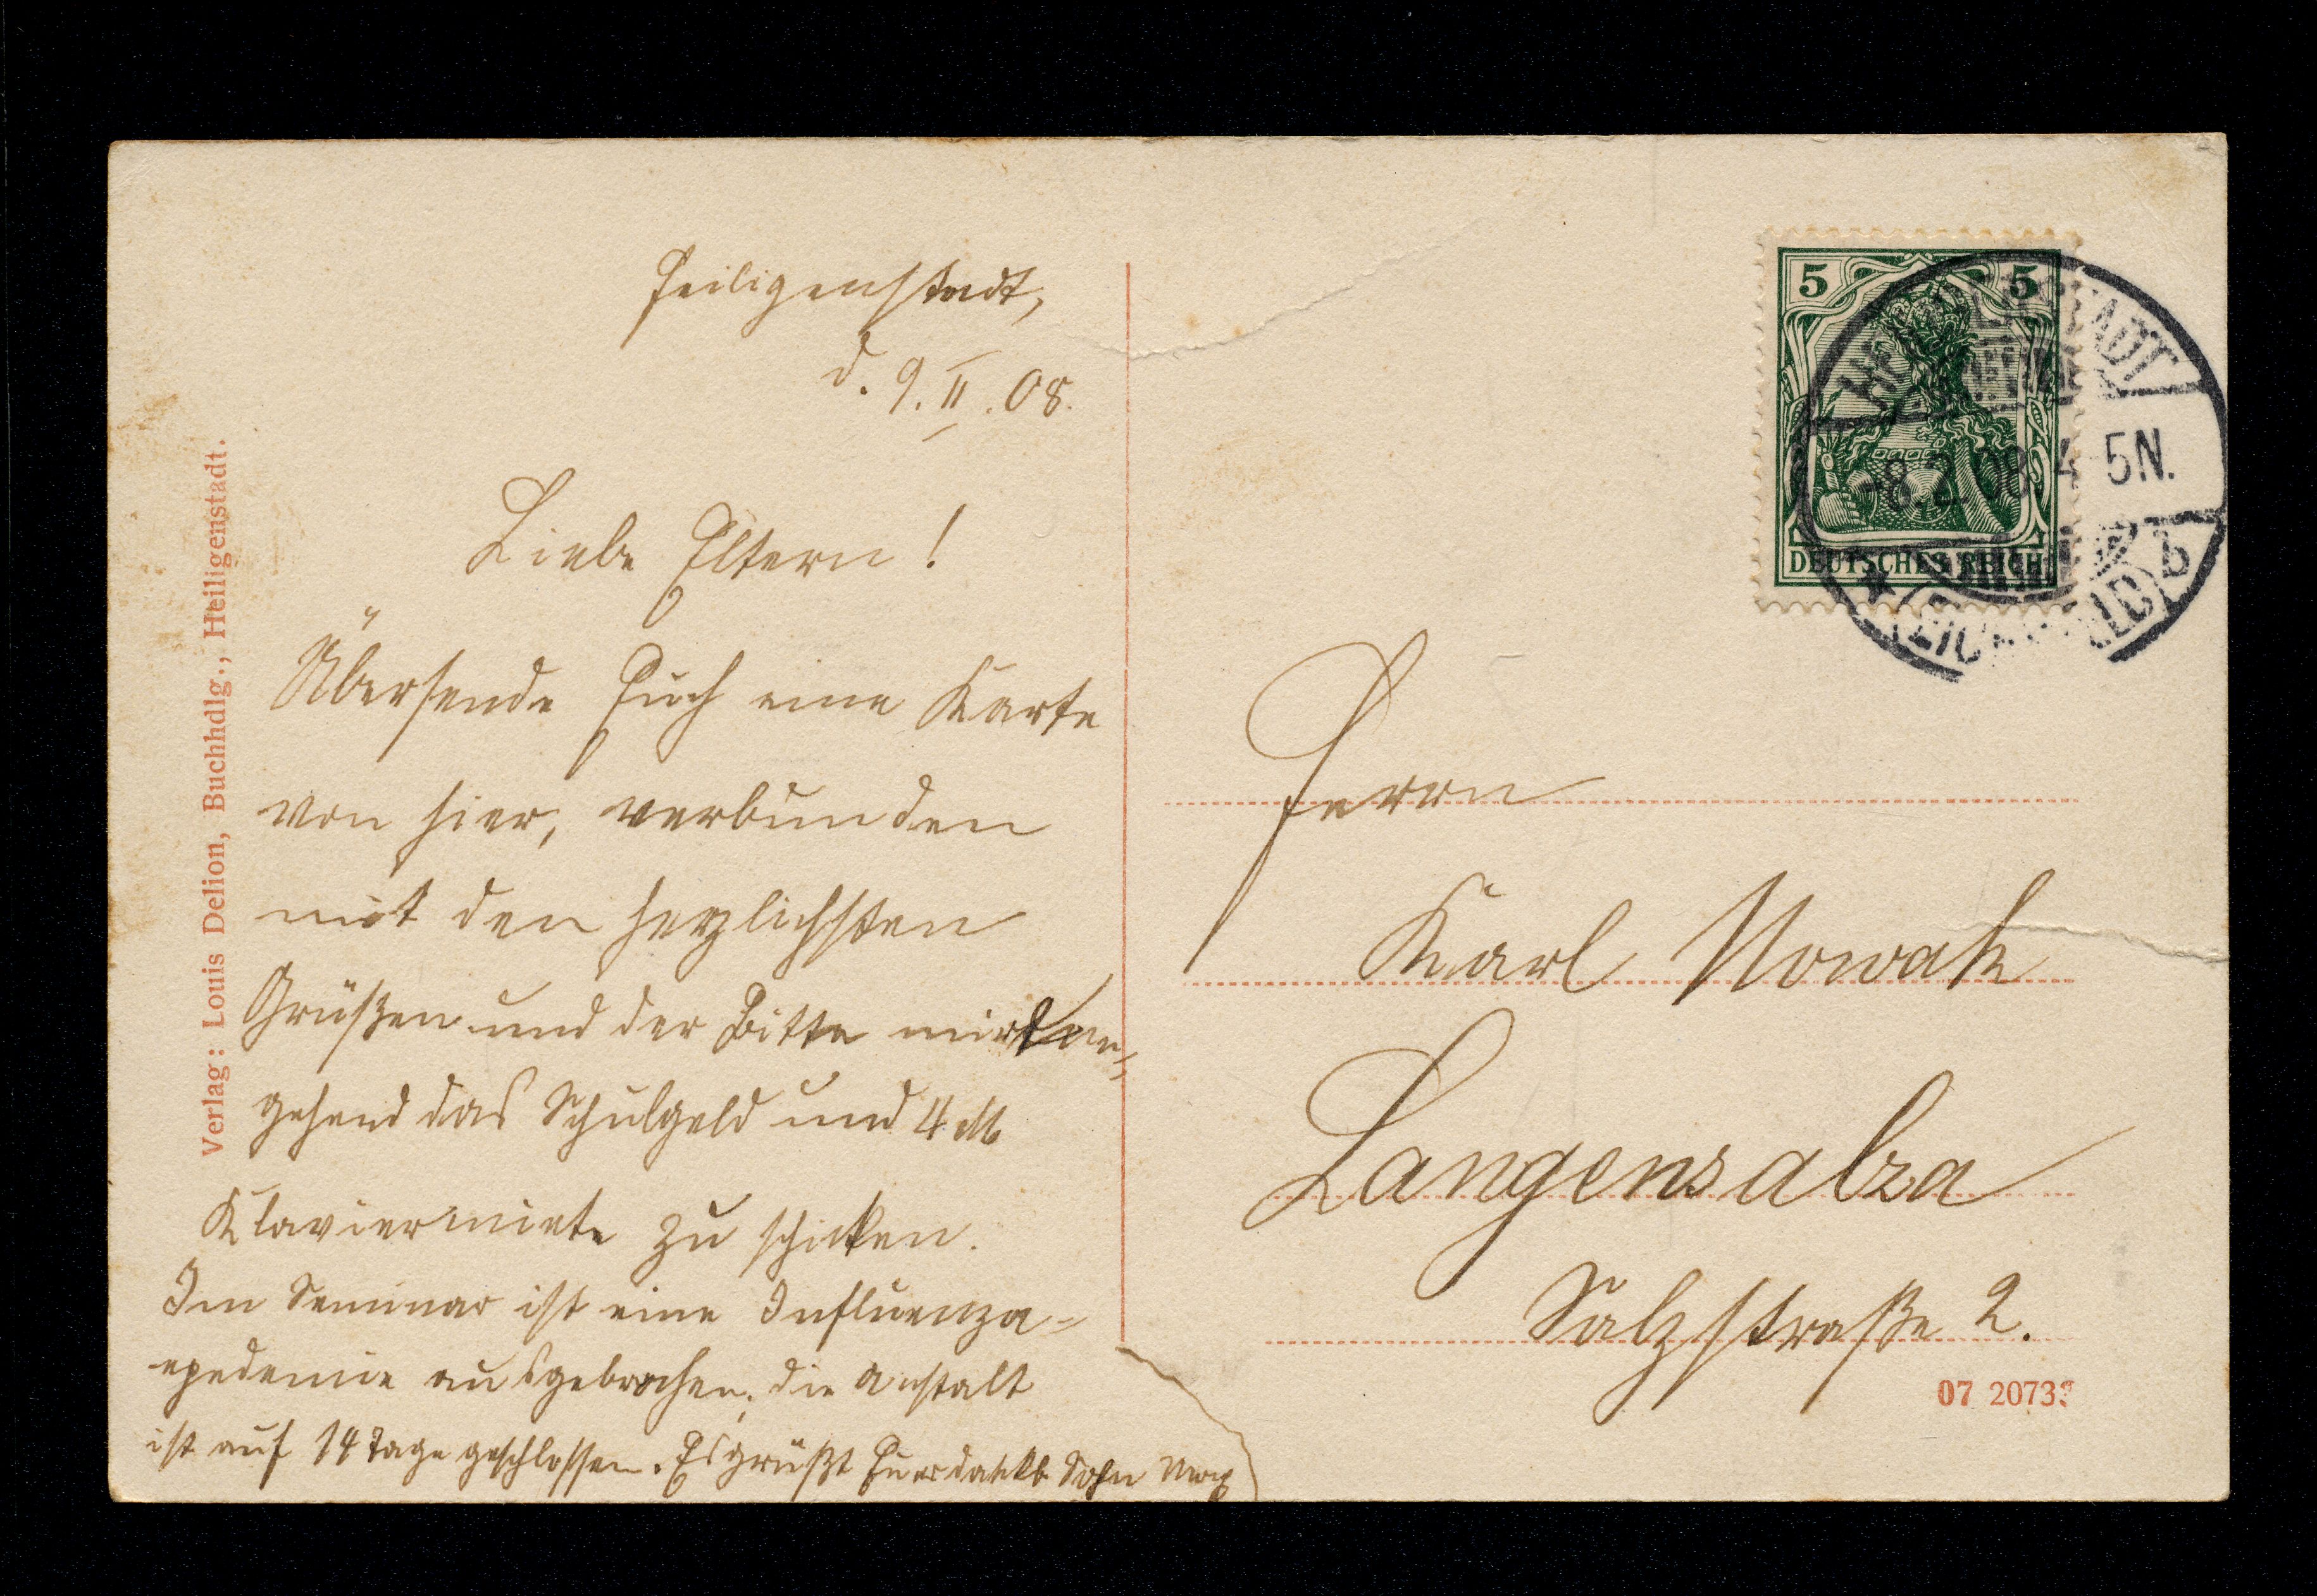 Heiligenstadt,
d. 9. II. 08.
Liebe Eltern!
Übersende Euch eine Karte
von hier, verbunden
mit den herzlichsten
Grüßen und der Bitte mir
gehend das Schulgeld und 4 M
Klaviermiete zu schicken.
Im Seminar ist eine Influenza-
epedemie ausgebrochen; die Anstalt
ist auf 14 Tage geschlossen. Es grüßt Euer dankb. Sohn Max
Verlag: Louis Delion, Buchhdlg., Heiligenstadt.
5 5
DEUTSCHES REICH
HEILIGENSTADT
-8.2.08 4-5N.
* (EICHSFELD) b
Herrn
Karl Nowak
Langensalza
Salzstraße 2.
07 2073